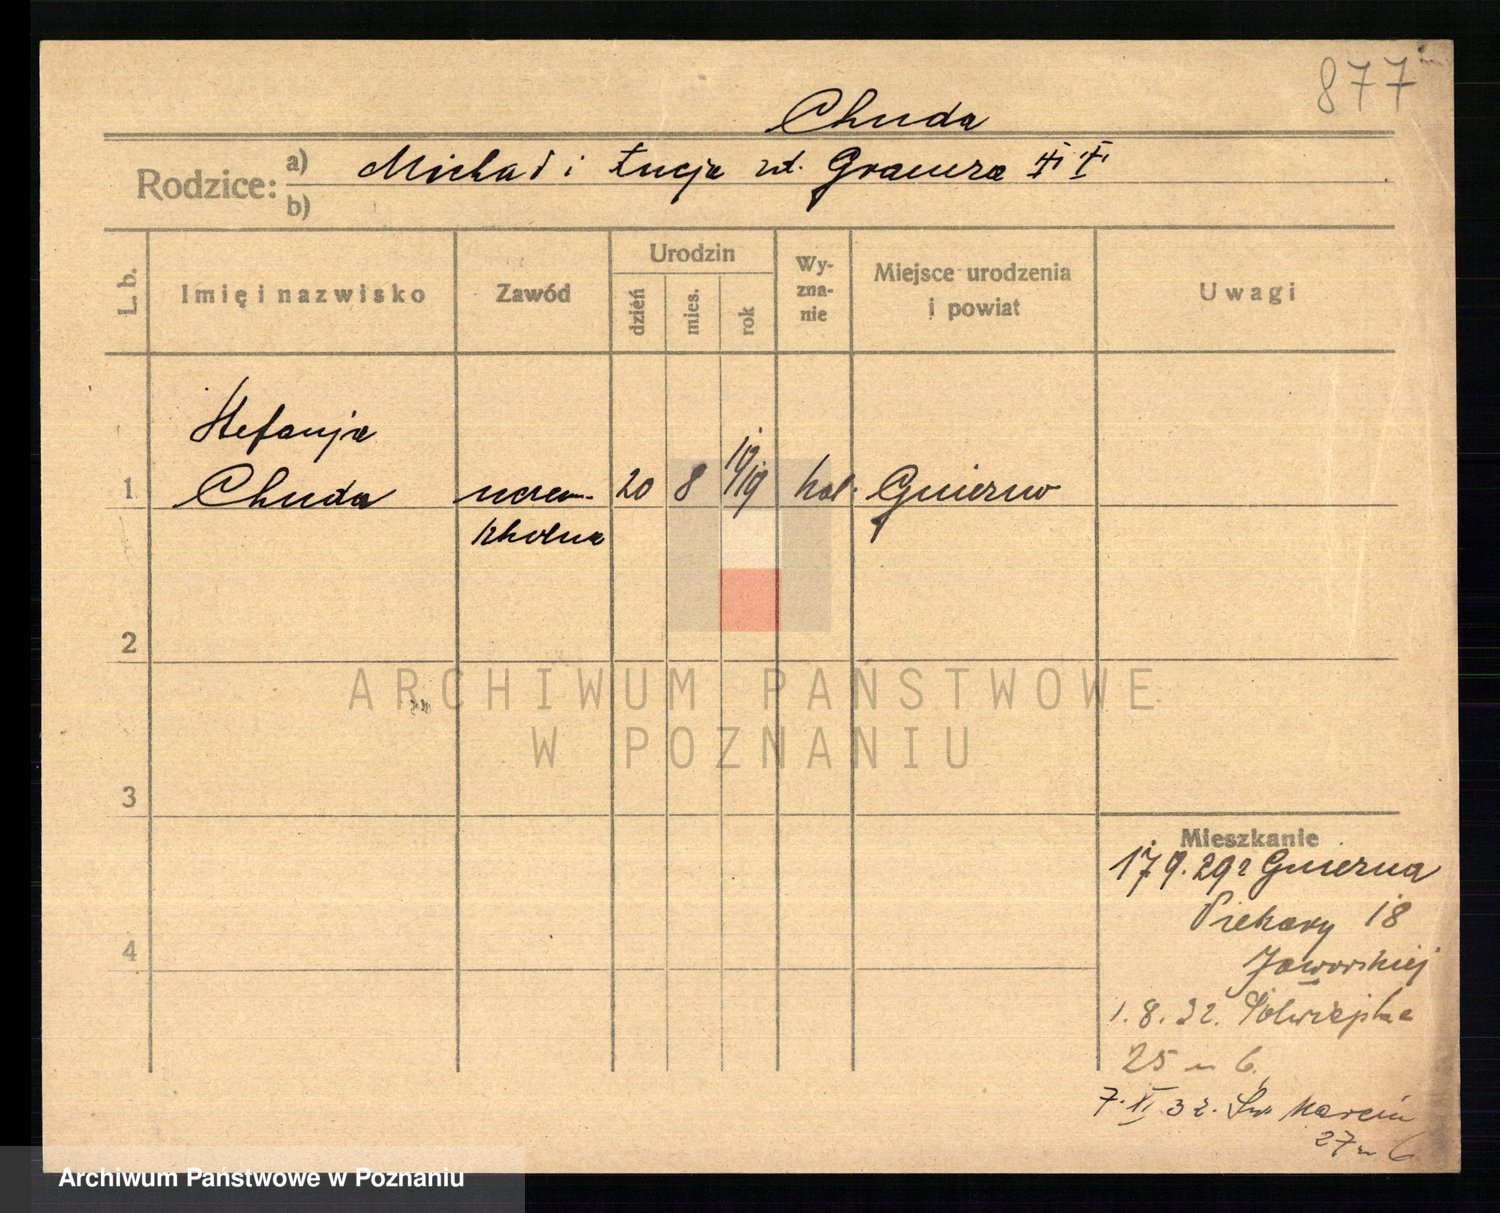 877
Chuda
Rodzice: a) Michał i Łucja zd. Grauza
b)
L. b. Imię i nazwisko Zawód Urodzin dzień mies. rok Wy-zna-nie Miejsce urodzenia i powiat Uwagi
Stefanja
1 Chuda uczen. 20 8 19/19 kat. Gniezno
szkolna
2
ARCHIWUM PAŃSTWOWE
W POZNANIU
3
Mieszkanie
17 9. 29 z Gniezna
4 Piekary 18
Jaworskiej
1. 8. 32. Półwiejska
25 m 6.
7. XI 32. Św Marcin
27 m 6
Archiwum Państwowe w Poznaniu